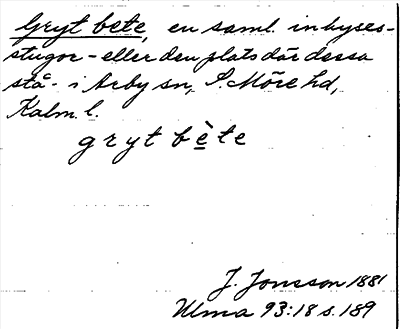 Gryt bete, en saml. inhyses-
stugor - eller den plats där dessa
stå - i Arby sn, S. Möre hd,
Kalm. l.
grytbète
J. Jonsson 1881
Ulma 93:18 s. 189